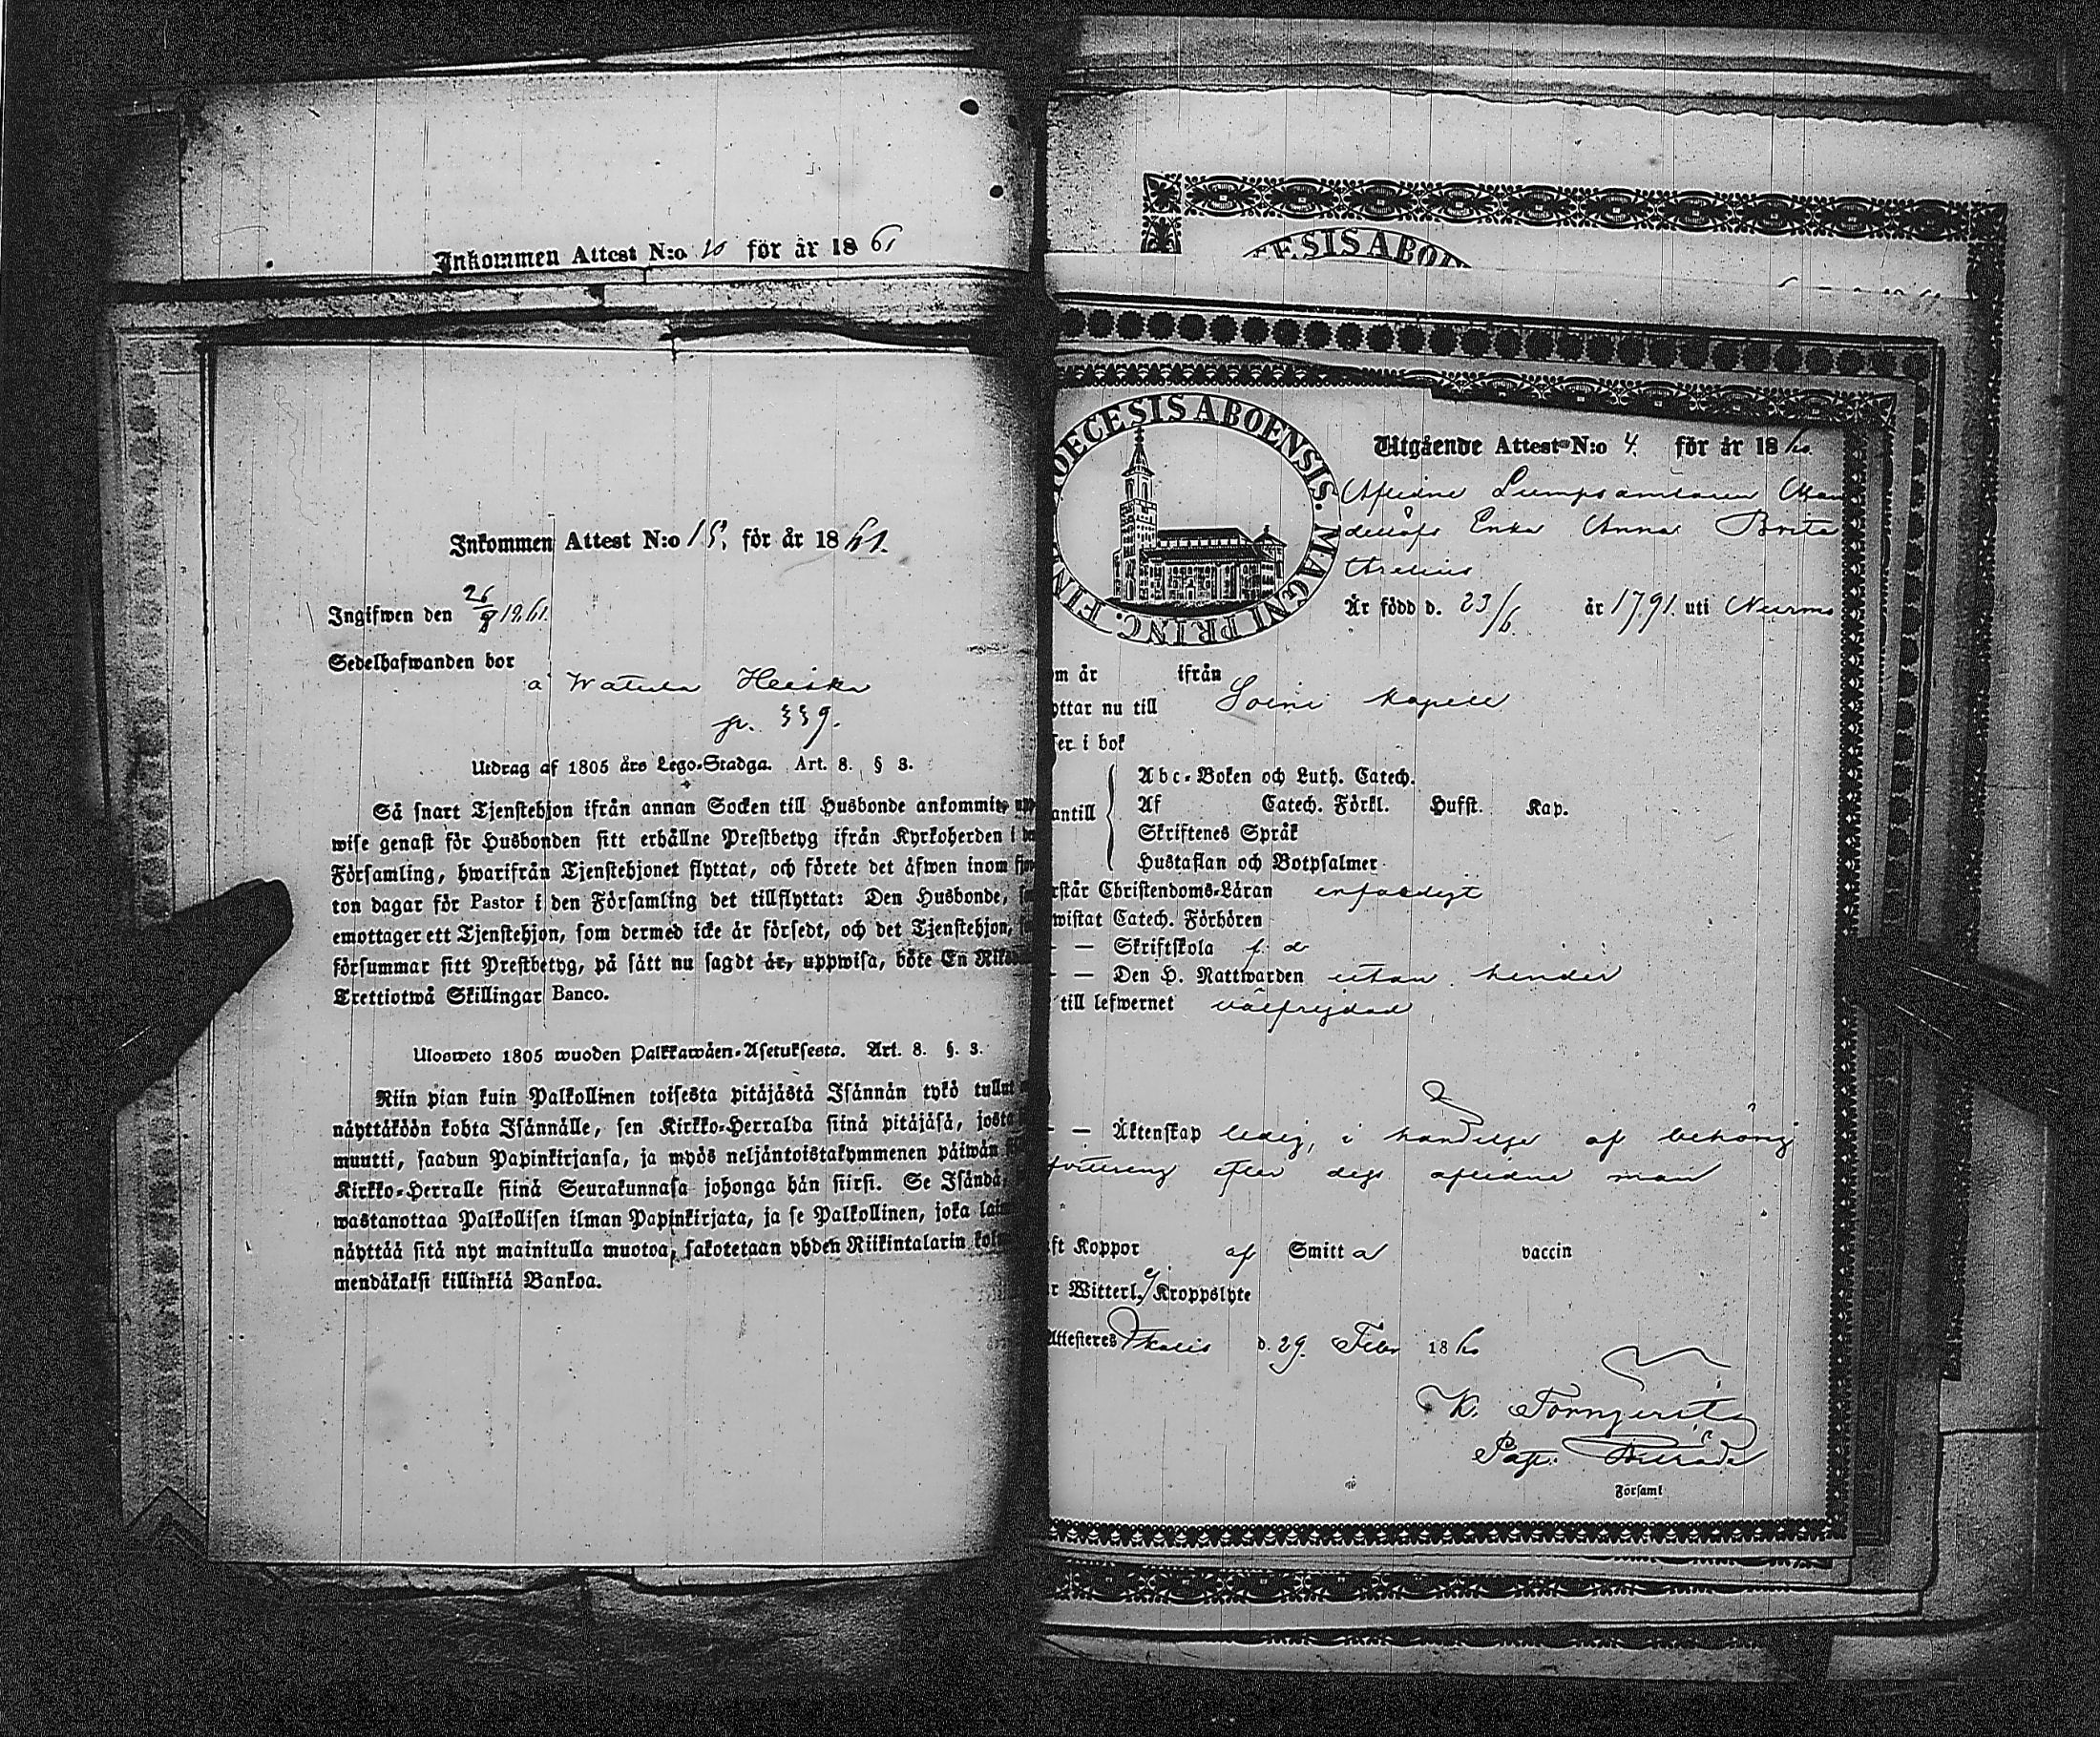 Inkommen Attest N:o 10 för år 1861
Inkommen Attest N:o 15, för år 1861.
Ingifwen den 26/9 1861.
Sedelhafwanden bor
å Watula Heiska
p. 339.
Utdrag af 1805 års Lego-Stadga. Art. 8. § 3.
Så snart Tjenstehjon ifrån annan Socken till Husbonde ankommit, upp
wise genast för Husbonden sitt erhållne Prestbetyg ifrån Kyrkoherden i
Församling, hwarifrån Tjenstehjonet flyttat, och förete det äfwen inom fjor
ton dagar för Pastor i den Församling det tillflyttat: Den Husbonde,
emottager ett Tjenstehjon, som dermed icke är försedt, och det Tjenstehjon,
försummar sitt Prestbetyg, på sätt nu sagdt är, uppwisa, böte En Riks
Trettiotwå Skillingar Banco.
Ulosweto 1805 wuoden Palkkawäen-Asetuksesta. Art. 8. §. 3.
Niin pian kuin Palkollinen toisesta pitäjästä Isännän tykö tullut
näyttäköön kohta Isännälle, sen Kirkko-Herralda siinä pitäjäsä, josta
muutti, saadun Papinkirjansa, ja myös neljäntoistakymmenen päiwän
Kirkko-Herralle siinä Seurakunnasa johonga hän siirsi. Se Isändä,
wastanottaa Palkollisen ilman Papinkirjata, ja se Palkollinen, joka
näyttää sitä nyt mainitulla muotoa, sakotetaan yhden Riikintalarin kol
mendakaksi killinkiä Bankoa.
ESIS ABO
DIOECESIS ABOENSIS. MAGNI PRINC. FIN
Utgående Attest N:o 4. för år 1860.
Aflidne Lumpsamlaren
Enka Anna Brita
Är född d. 23/6. år 1791. uti Nurmo
m år ifrån
ottar nu till Soini Kapell
ser i bok
antill
Abc-Boken och Luth. Catech.
Af Catech. Förkl. Husst. Kap.
Skriftenes Språk
Hustaflan och Botpsalmer
rstår Christendoms-Läran enfaldigt
wistat Catech. Förhören
— — Skriftskola f. d
— — Den H. Nattwarden utan hinder
till lefwernet välfrejdad
— — Äktenskap ledig, i händelse af behörig
afvittring efter dess aflidne man
ft Koppor af Smitta vaccin
r Witterl. Kroppslyte
Attesteres d. 29. Febr 1860
K. Forngerits
Past. Biträde
Församl